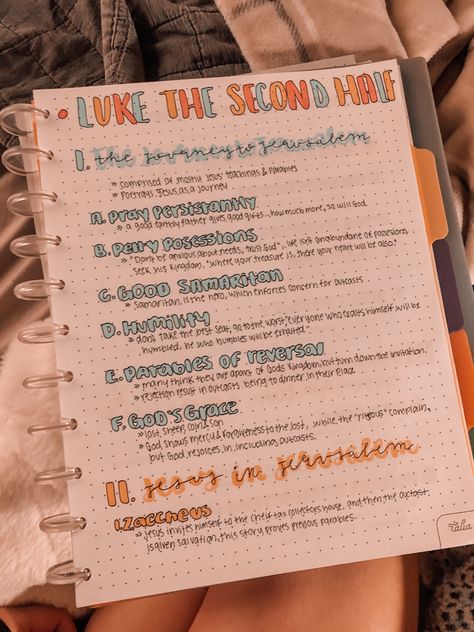 LUKE THE SECOND HALF
I. the journey to Jerusalem
» comprised of mostly Jesus' teachings & parables
» portrays Jesus as a journey
A. Pray Persistantly
» a good earthly father gives good gifts... how much more, so will God.
B. Deity Posessions
» "Don't be anxious about needs, trust God", life isn't an abundance of possesions,
Seek his kingdom, "where your treasure is, there your heart will be also."
C. GOOD Samaritan
» Samaritan is the hero, which enforces concern for outcasts
D. Humility
» don't take the best seat, go to the worst, "everyone who exalts himself will be
humbled, he who humbles will be exalted."
E. Parables of reversal
» many think they are apart of Gods Kingdom, but turn down the invitation.
» rejection result in outcasts being to dinner in their place
F. GOD'S Grace
» lost, sheep, coin & son
» God, shows mercy & forgiveness to the lost, while the "righteous" complain,
but God rejoices in including outcasts.
II. Jesus in Jerusalem
1. Zaccheus
» Jesus invites himself to the chief tax collectors house, and then the outcast
is given salvation, this story proves previous parables.
talia